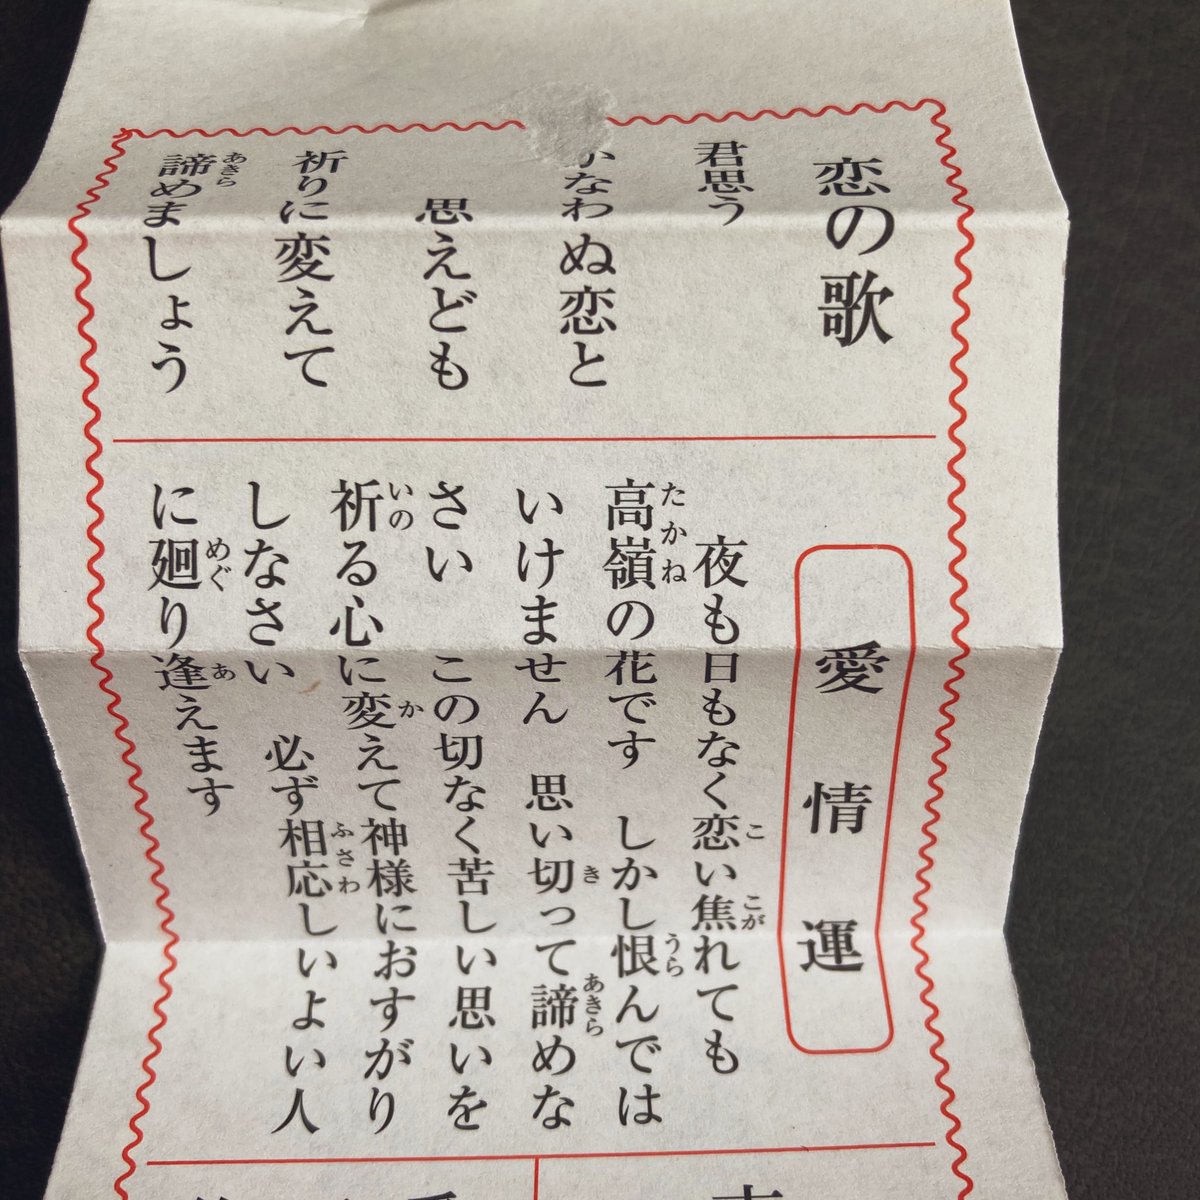 恋の歌
君思う
かなわぬ恋と
思えども
祈りに変えて
諦めましょう
愛情運
夜も日もなく恋い焦れても
高嶺の花です しかし恨んでは
いけません 思い切って諦めな
さい この切なく苦しい思いを
祈る心に変えて神様におすがり
しなさい 必ず相応しいよい人
に廻り逢えます